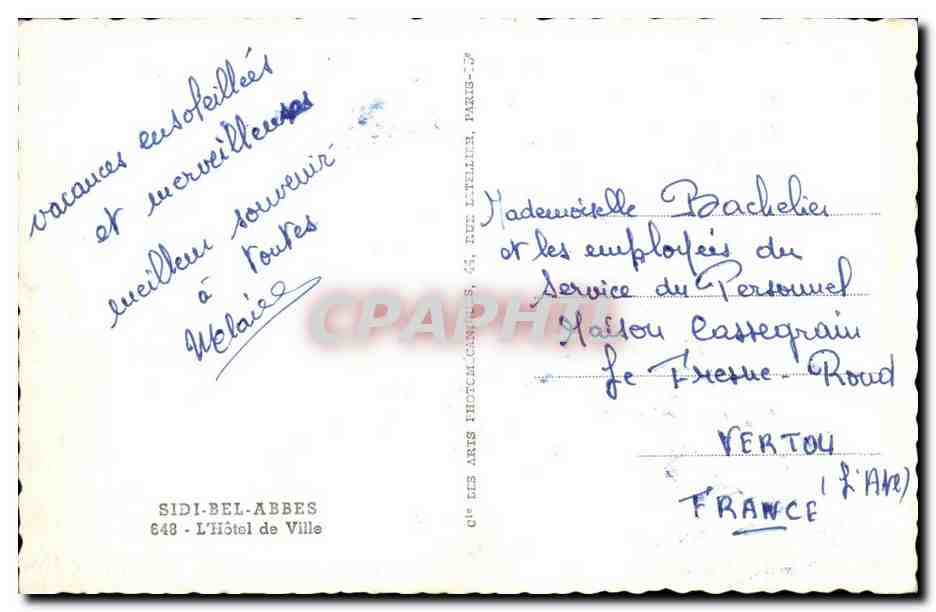 vacances ensoleillées
et merveilleuses
meilleur souvenir
à toutes
SIDI-BEL-ABBES
848 - L'Hôtel de Ville
Cie DES ARTS PHOTOMECANIQUES, 44, RUE LETELLIER, PARIS-15e
CPARHT
Mademoiselle Bachelier
et les employées du
Service du Personnel
Maison Cassegrain
Le Fresne-Rond
VERTOU
(L. Atl)
FRANCE